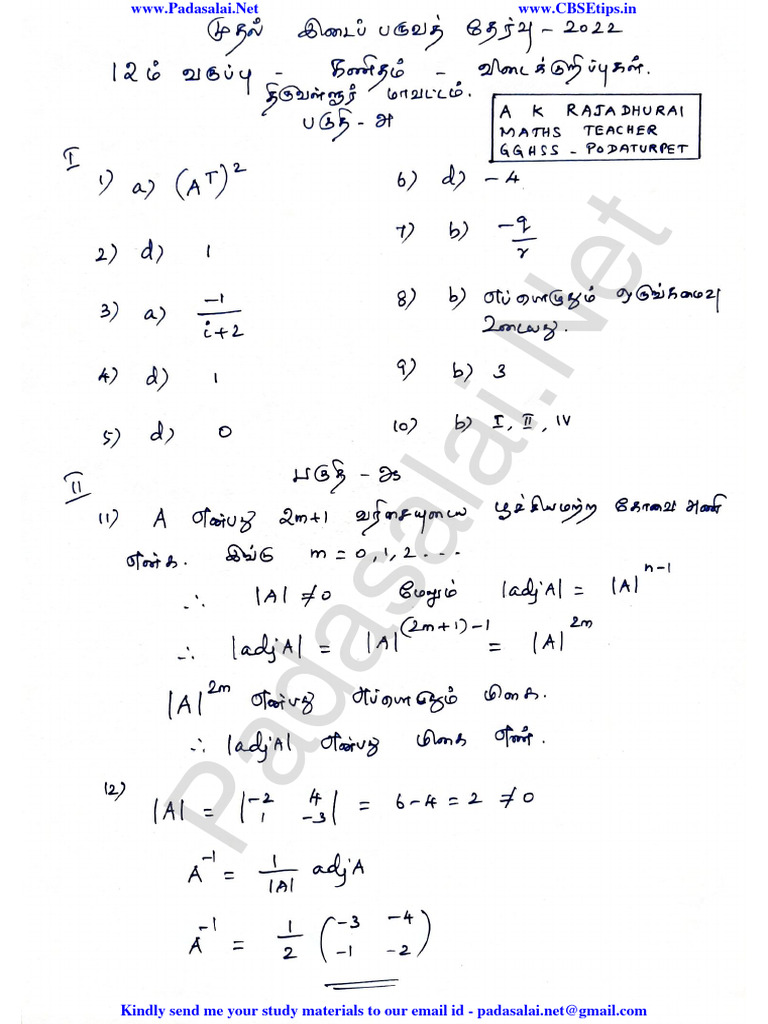 www.Padasalai.Net www.CBSEtips.in
முதல் இடைப் பருவத் தேர்வு - 2022
12ம் வகுப்பு - கணிதம் - விடைக்குறிப்புகள்.
திருவள்ளூர் மாவட்டம்.
பகுதி - அ
A K RAJADHURAI
MATHS TEACHER
GGHSS - PODATURPET
I
1) a) (A^T)^2
2) d) 1
3) a) -1/(i+2)
4) d) 1
5) d) 0
6) d) -4
7) b) -q/r
8) b) எப்பொழுதும் ஒருங்கமைவு
உடையது.
9) b) 3
10) b) I, II, IV
II பகுதி - ஆ
11) A என்பது 2m+1 வரிசையுடைய பூச்சியமற்ற கோவை அணி
என்க. இங்கு m = 0, 1, 2 ...
∴ |A| ≠ 0 மேலும் |adj A| = |A|^(n-1)
∴ |adj A| = |A|^((2m+1)-1) = |A|^(2m)
|A|^(2m) என்பது எப்பொதும் மிகை.
∴ |adj A| என்பது மிகை எண்.
12) |A| = |-2 4; 1 -3| = 6-4 = 2 ≠ 0
A^-1 = 1/|A| adj A
A^-1 = 1/2 (-3 -4; -1 -2)
Padasalai.Net
Kindly send me your study materials to our email id - padasalai.net@gmail.com